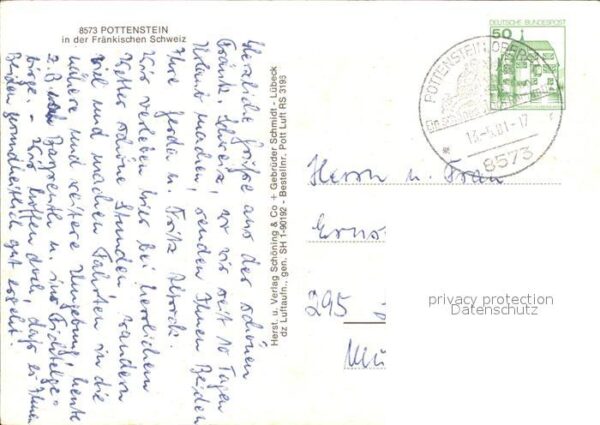 8573 POTTENSTEIN
in der Fränkischen Schweiz
Herzliche Grüße aus der schönen
Fränk. Schweiz, wo wir seit 10 Tagen
Urlaub machen, senden Ihnen Beiden
Ihre Gerda u. Fritz
Wir verleben hier bei herrlichem
Wetter schöne Stunden, wandern
viel und machen Fahrten in die
nähere und weitere Umgebung, heute
z.B. nach Bayreuth u. ins Fichtelge-
birge. - Wir hoffen doch, daß es Ihnen
Beiden gesundheitlich gut ergeht.
Herst. u. Verlag Schöning & Co + Gebrüder Schmidt - Lübeck
dz Luftaufn., gen. SH 1-90192 - Bestellnr. Pott Luft RS 3193
DEUTSCHE BUNDESPOST
50
POTTENSTEIN, OBERFR
8573
Herrn u. Frau
Erns
295
privacy protection
Datenschutz